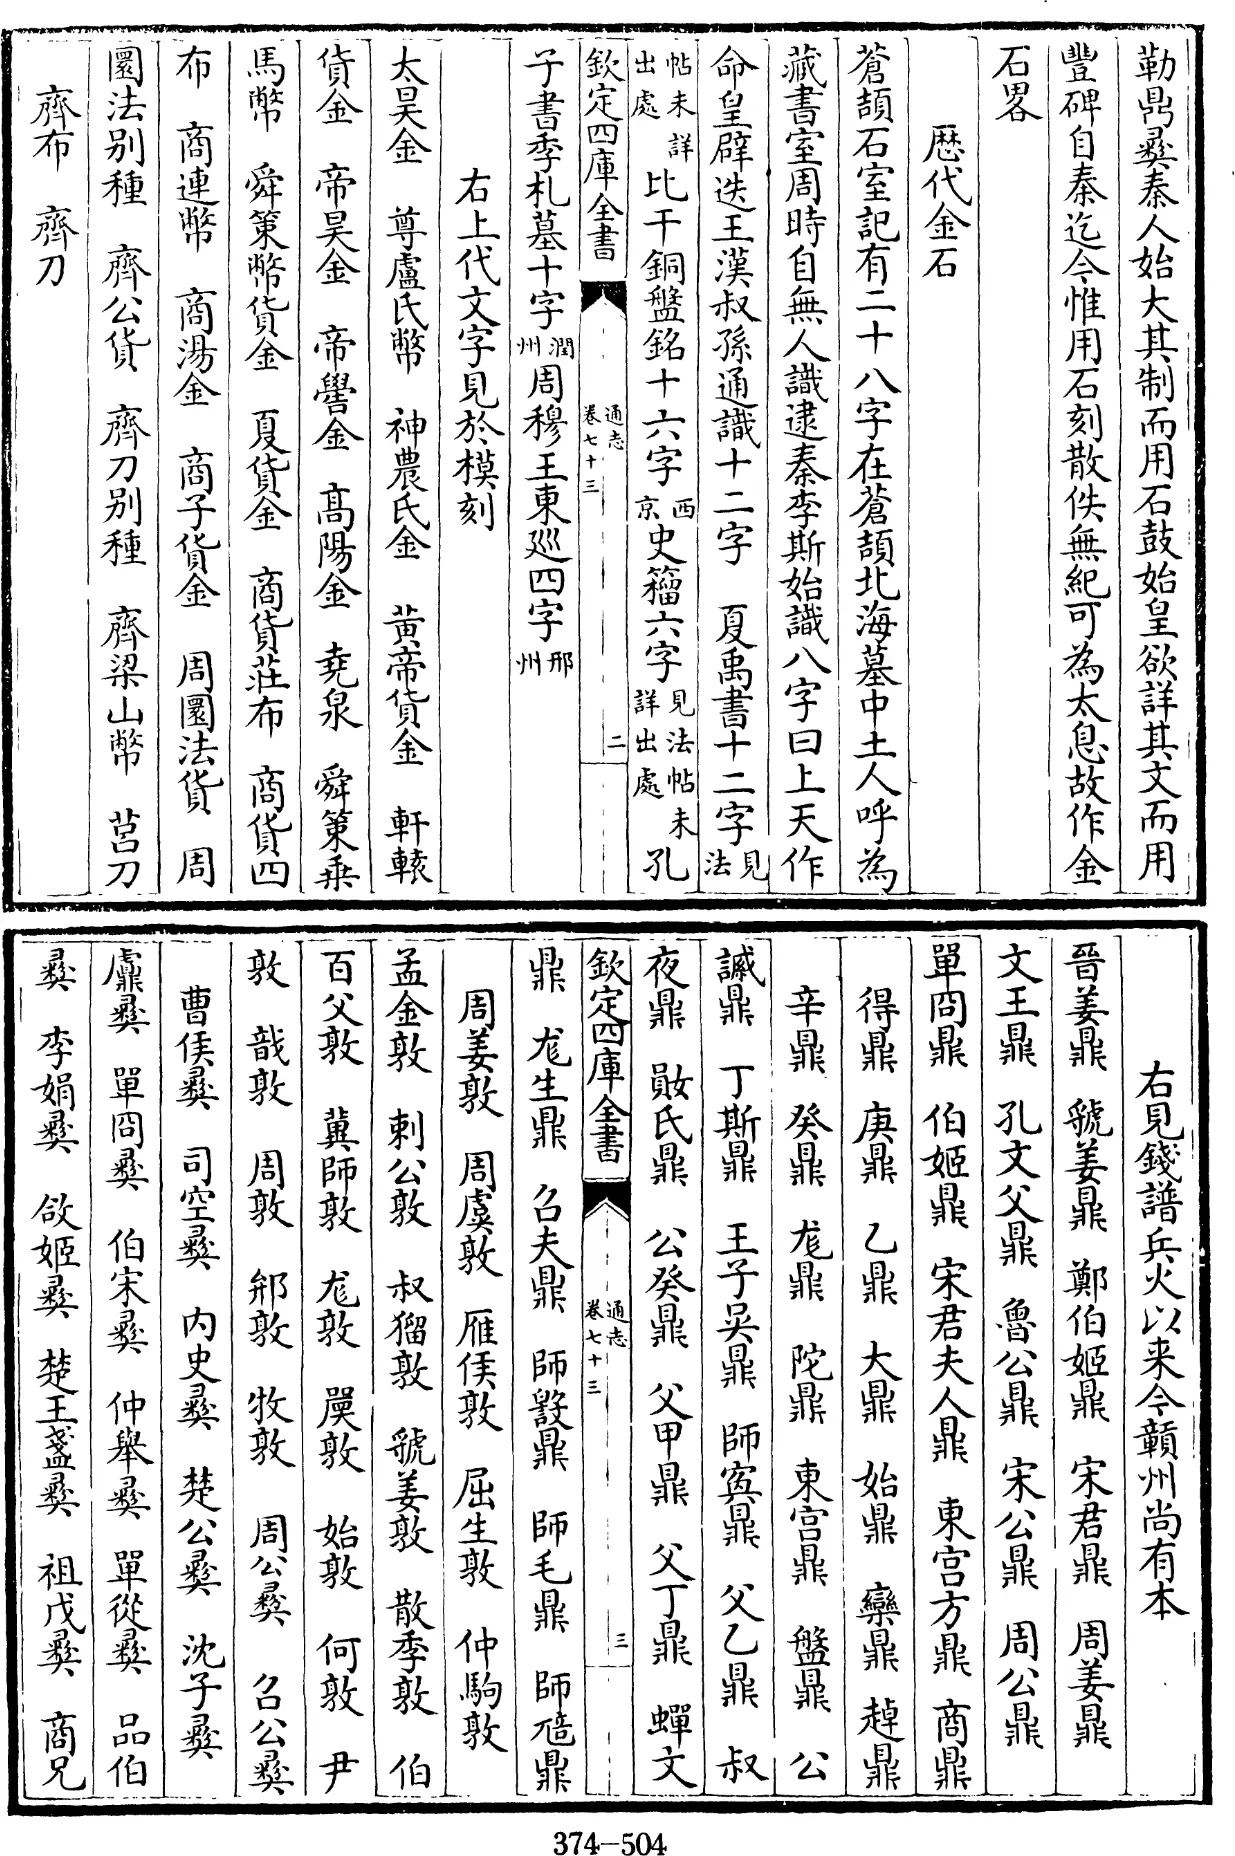 勒鼎彛秦人始大其制而用石鼓始皇欲詳其文而用
豐碑自秦迄今惟用石刻散佚無紀可為太息故作金
石畧
歴代金石
蒼頡石室記有二十八字在蒼頡北海墓中土人呼為
藏書室周時自無人識逮秦李斯始識八字曰上天作
命皇辟迭王漢叔孫通識十二字　夏禹書十二字見法
帖未詳出處比干銅盤銘十六字西京史籀六字見法帖未詳出處孔
欽定四庫全書　通志卷七十三　二
子書季札墓十字潤州周穆王東廵四字邢州
右上代文字見於模刻
太昊金　尊盧氏幣　神農氏金　黄帝貨金　軒轅
貨金　帝昊金　帝嚳金　髙陽金　堯泉　舜策乗
馬幣　舜策幣貨金　夏貨金　商貨莊布　商貨四
布　商連幣　商湯金　商子貨金　周圜法貨　周
圜法别種　齊公貨　齊刀别種　齊梁山幣　莒刀
齊布　齊刀
右見錢譜兵火以来今贑州尚有本
晉姜鼎　虢姜鼎　鄭伯姬鼎　宋君鼎　周姜鼎
文王鼎　孔文父鼎　魯公鼎　宋公鼎　周公鼎
單冏鼎　伯姬鼎　宋君夫人鼎　東宫方鼎　商鼎
得鼎　庚鼎　乙鼎　大鼎　始鼎　欒鼎　趠鼎
辛鼎　癸鼎　尨鼎　陀鼎　東宫鼎　盤鼎　公
諴鼎　丁斯鼎　王子吴鼎　師寏鼎　父乙鼎　叔
夜鼎　㜏氏鼎　公癸鼎　父甲鼎　父丁鼎　蟬文
欽定四庫全書　通志卷七十三　三
鼎　尨生鼎　召夫鼎　師㝨鼎　師毛鼎　師鼎
周姜敦　周虞敦　雁侯敦　屈生敦　仲駒敦
孟金敦　刺公敦　叔㺉敦　虢姜敦　散季敦　伯
百父敦　冀師敦　尨敦　敦　始敦　何敦　尹
敦　敔敦　周敦　䢵敦　牧敦　周公彛　召公彛
曹侯彛　司空彛　内史彛　楚公彛　沈子彛
彛　單冏彛　伯宋彛　仲舉彛　單從彛　品伯
彛　李娟彛　㰴姬彛　楚王盞彛　祖戊彛　商兄
374-504